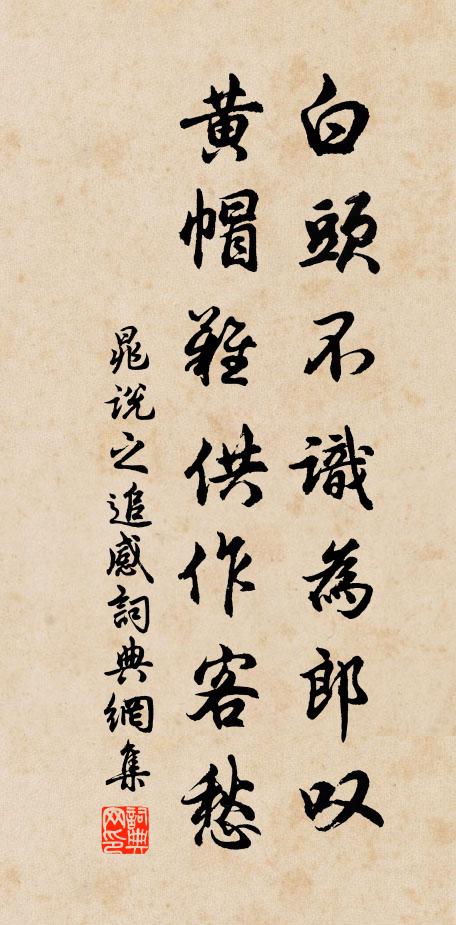 白頭不識為郎叹
黄帽難供作客愁
晁説之追感詞典網集
詞典网印